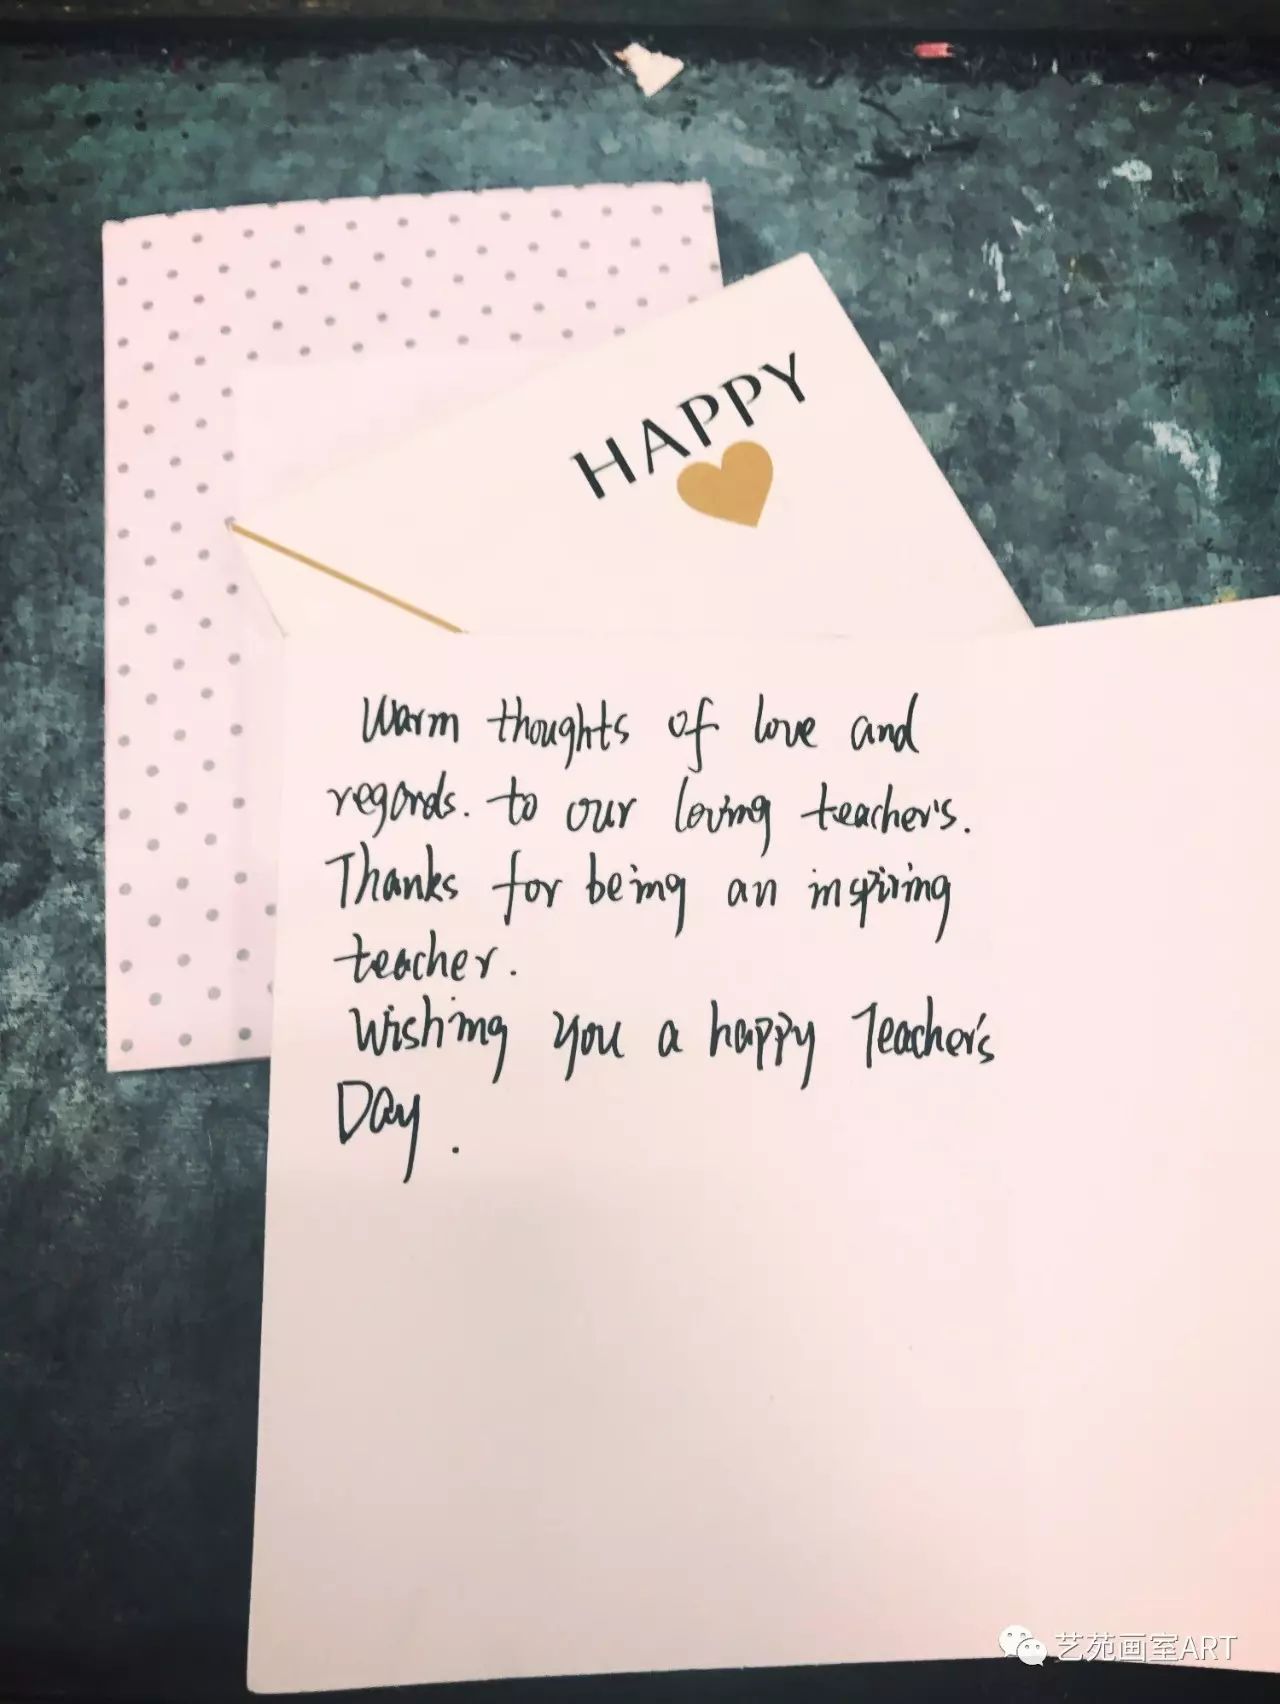 HAPPY
Warm thoughts of love and
regards. to our loving teacher's.
Thanks for being an inspiring
teacher.
Wishing you a happy Teacher's
Day.
艺苑画室ART